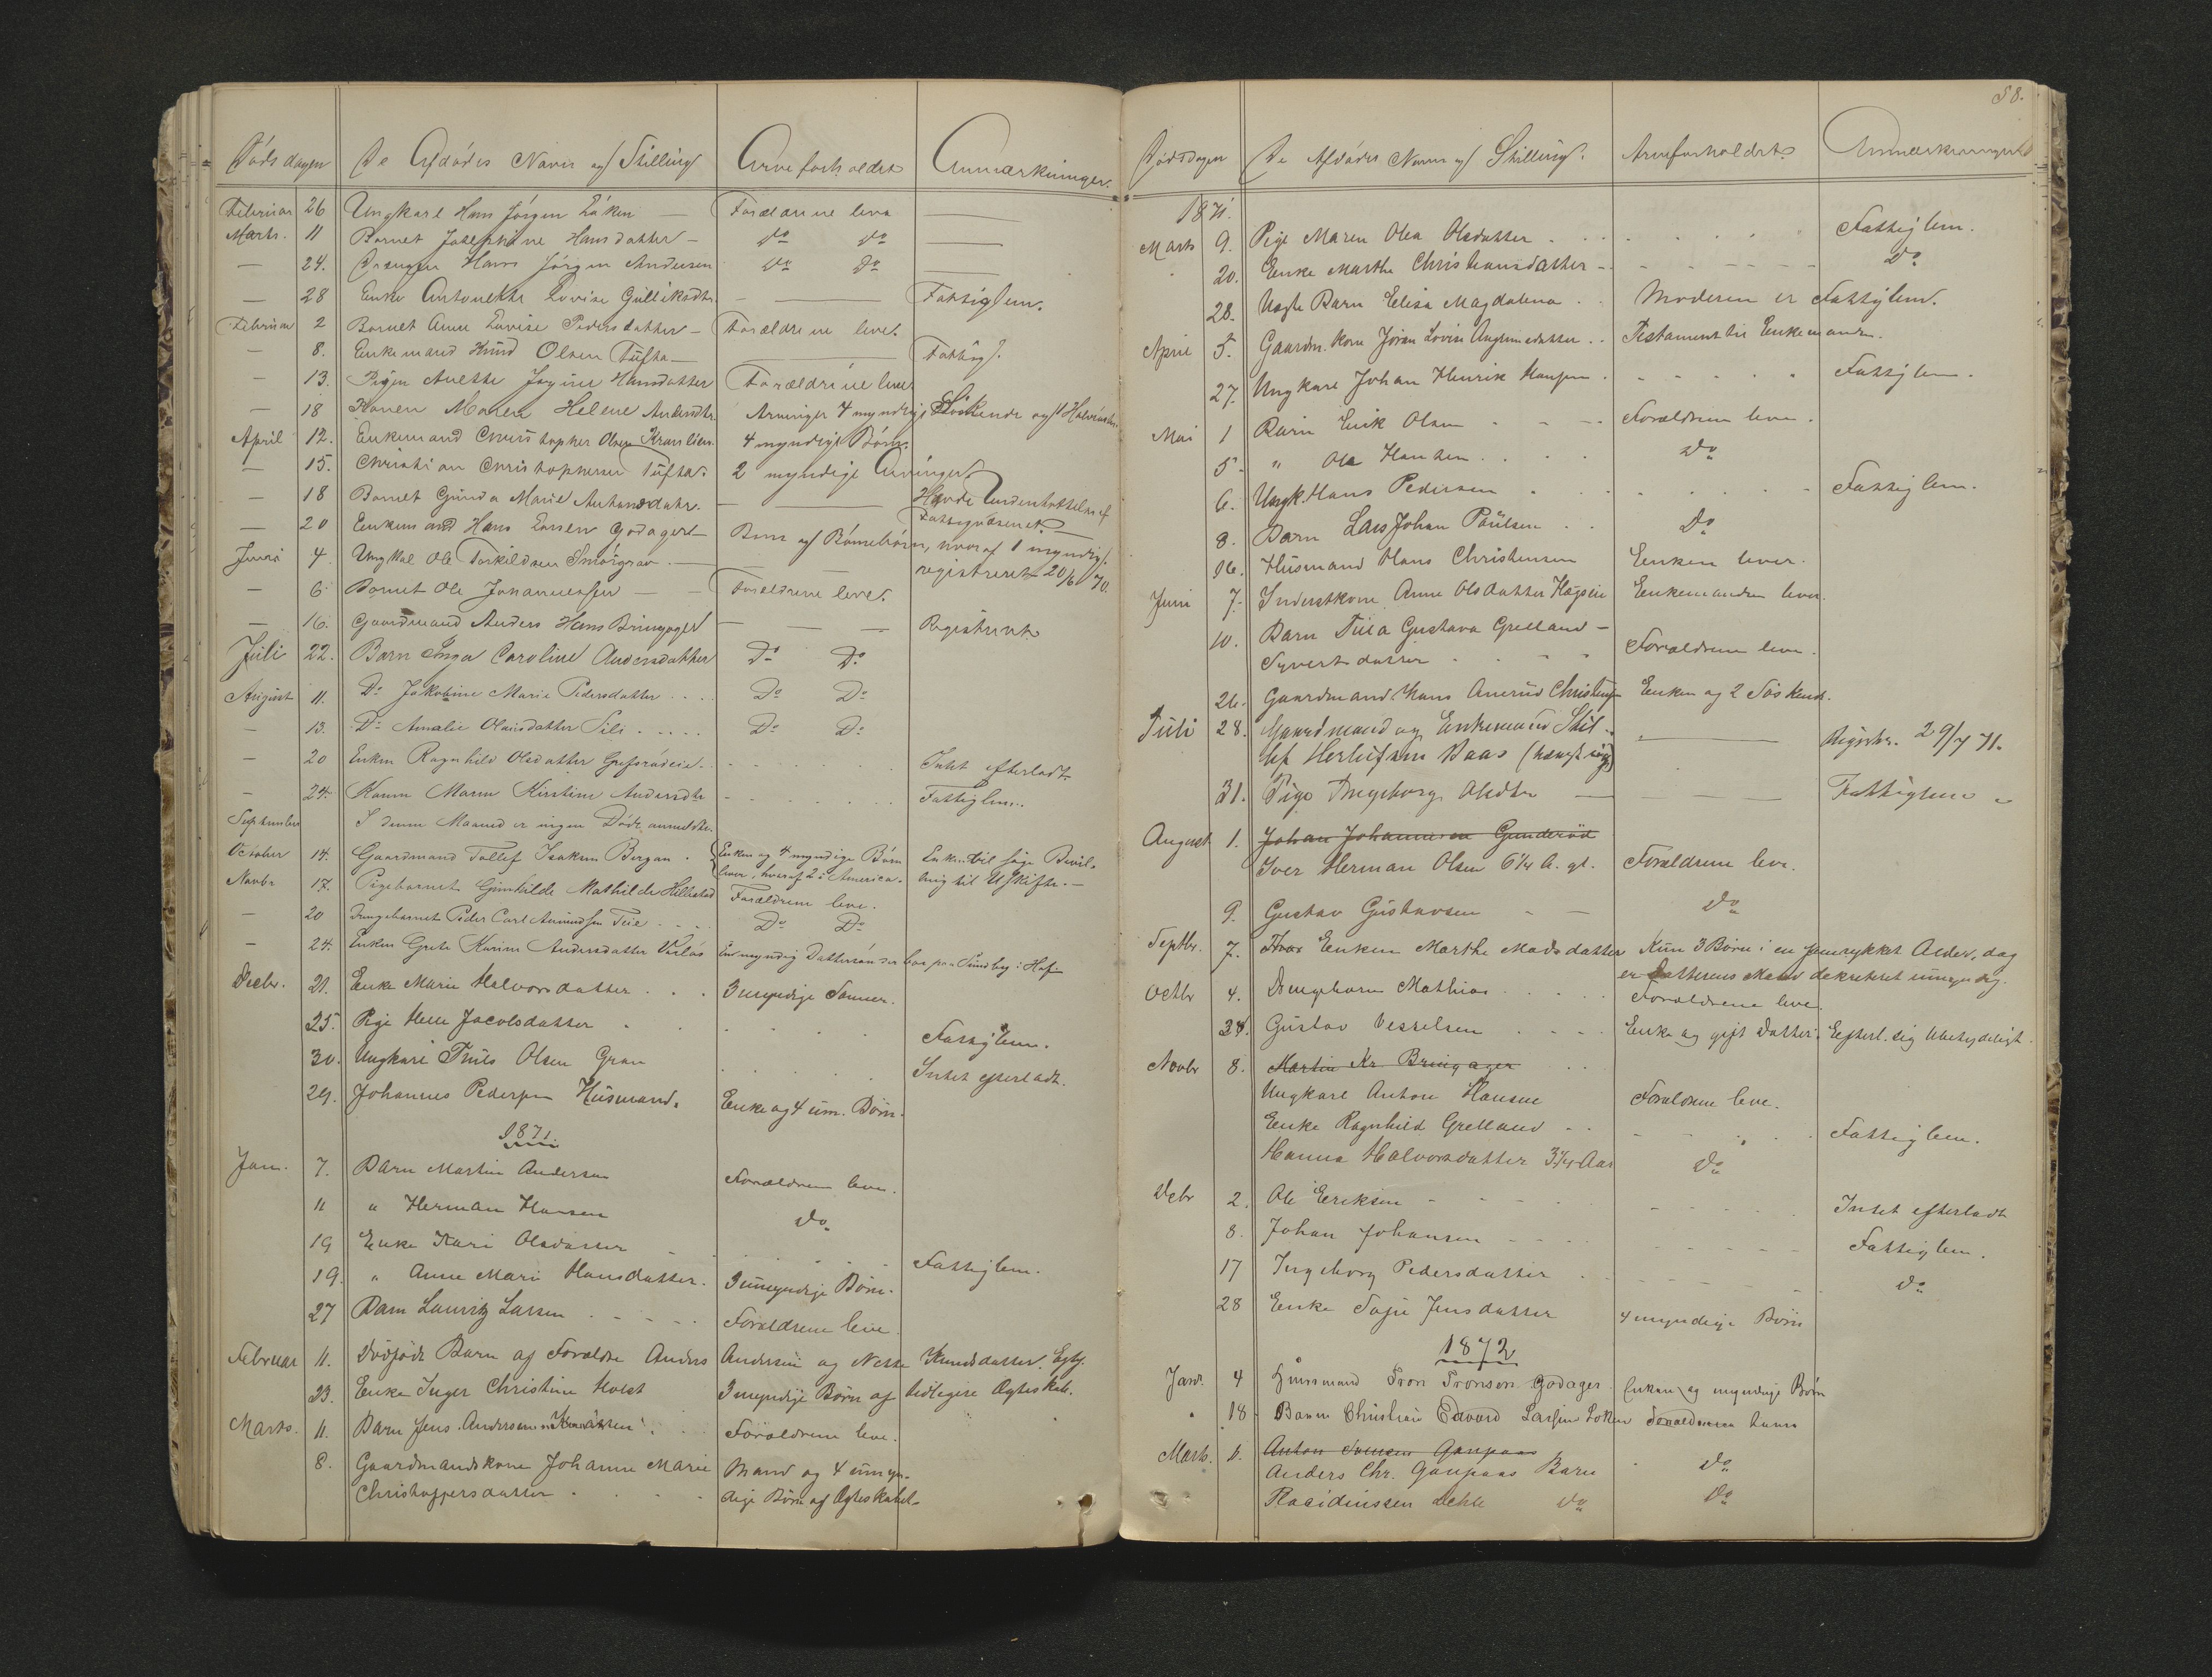 Dødsdagen De Afdødes Navn og Stilling Arveforholdet Anmærkninger.
Februar 26 Ungkarl Hans Jörgen Löken — Forældrene leve
Marts. 11 Barnet Josephine Hansdatter — Do Do
— 24. Drengen Hans Jörgen Andersen Do Do
— 28 Enke Antonette Lovise Gulliksdtr. — Fattiglem.
Februar 2 Barnet Anne Lovise Pedersdatter — Forældrene lever.
— 8. Enkemand Knud Olsen Tufta — Fattig.
— 13. Pigen Anette Hansdatter Forældrene lever
— 18 Konen Maren Helene Arvinger 4 myndige Söskende og 1
April 12. Enkemand Christopher Olsen 4 myndige Börn.
— 15. Christian Christophersen Tufta. 2 myndige Arvinger.
— 18 Barnet Gunda Marie — Havde Understöttelse af
Fattigvæsenet
— 20 Enkemand Hans Larsen Godager — Börn og Börnebörn, hvoraf 1 myndig.
registreret 20/6 70.
Juni 4. Ungkal Ole Torkildsen Smörgrav — —
— 6. Barnet Ole Johannessen — — Forældrene leve.
— 16. Gaardmand Anders Hans Bringager — — — Registreret
Juli 22. Barn Inga Caroline Andersdatter Do Do
August 11. Do Jakobine Marie Pedersdatter Do Do
— 13. Do Amalie Olausdatter Do Do
— 20 Enken Ragnhild Olsdatter Intet efterladt.
— 24. Konen Maren Kirstine Andersdtr Fattiglem.
September I denne Maaned er ingen Döde anmeldte.
October 14. Gaardmand Tollef Isaksen Bergan. Enken og 4 myndige Börn Enken vil söge Bevil-
lever, hvoraf 2 i America. ling til Uskifte. —
Novbr 17. Pigebarnet Gunhilde Mathilde Hillestad Forældrene leve.
— 20 Drengebarnet Peder Carl Amundsen Teie Do Do
— 24. Enken Grete Karine Andersdatter En myndig Dattersön der bor paa Sundby i Hof
Decbr. 21. Enke Marie Halvorsdatter 3 myndige Sönner.
25. Pige Helle Jacobsdatter Fattiglem.
30. Ungkarl Thiis Olsen Gran Intet efterladt.
29. Johannes Pedersen Husmand. Enke og 4 um. Börn.
1871
Jan. 7. Barn Martin Andersen Forældrene leve.
11 " Herman Hansen Do
19 Enke Kari Olsdatter Fattiglem.
19. " Anne Marie Hansdatter. 3 umyndige Börn.
27 Barn Lauritz Larsen Forældrene leve.
Februar 11. Dödfödt Barn af Forældre Anders Andersen og Nette Knudsdatter.
23. Enke Inger Christine Holst 3 myndige Börn af tidligere Ægteskab.
Marts. 11. Barn Jens Andersen Forældrene leve.
8. Gaardmandskone Johanne Marie Mand og 4 umyn-
Christophersdatter dige Börn af Ægteskabet
58.
Dødsdagen De Afdödes Navn og Stilling. Arveforholdet. Anmærkninger
1871.
Marts 9. Pige Maren Olea Olsdatter Fattiglem.
20. Enke Marthe Christiansdatter Do
28. Uægte Barn Elisa Magdalena Moderen er Fattiglem.
April 5. Gaardm. kone Jöran Lovise Testament til Enkemanden.
27. Ungkarl Johan Henrik Hansen Fattiglem.
Mai 1 Barn Erik Olsen Forældrene leve.
5. " Ole Hansen Do
6. Ungk. Hans Pedersen Fattiglem.
8. Barn Lars Johan Paulsen Do
16. Husmand Hans Christensen Enken lever.
Juni 7. Inderstkone Anne Olsdatter Enkemanden lever.
10. Barn Tilla Gustava Grelland —
Syvertsdatter Forældrene leve.
26. Gaardmand Hans Christensen Enken og 2 Söskende.
Juli 28. Gaardmand og Enkemand
Herlufsen Baas Registr. 29/7 71.
31. Pige Ingeborg Olsdtr — Fattiglem
August 1. Johan Johannesen Gunderöd
Iver Herman Olsen 6 1/4 A. gl. Forældrene leve.
9. Gustav Gustavsen Do
Septbr. 7. Enken Marthe Madsdatter Kun 3 Börn i en fremrykket Alder, dog
er Datterens Mand dekreteret umyndig.
Octbr 4. Drengebarn Mathias Forældrene leve.
Gustav Vesselsen Enke og gift Datter. Efterl. sig Ubetydeligt.
Novbr 8. Martin Kr Bringager
Ungkarl Anton Hansen Forældrene leve.
Enke Ragnhild Grelland Fattiglem.
Hanna Halvorsdatter 3 1/4 Aar Do
Debr 2. Ole Eriksen Intet efterladt
8. Johan Johansen Fattiglem.
17 Ingeborg Pedersdatter Do
28 Enke Jensdatter 4 myndige Börn
1872
Janr. 4 Husmand Tron Tronsen Godager Enken og myndige Börn
18 Barn Christian Edvard Larsen Löken Forældrene leve
Marts. 6. Anton Gaupaas
Anders Chr. Gaupaas Barn Do
Dehli Do Do